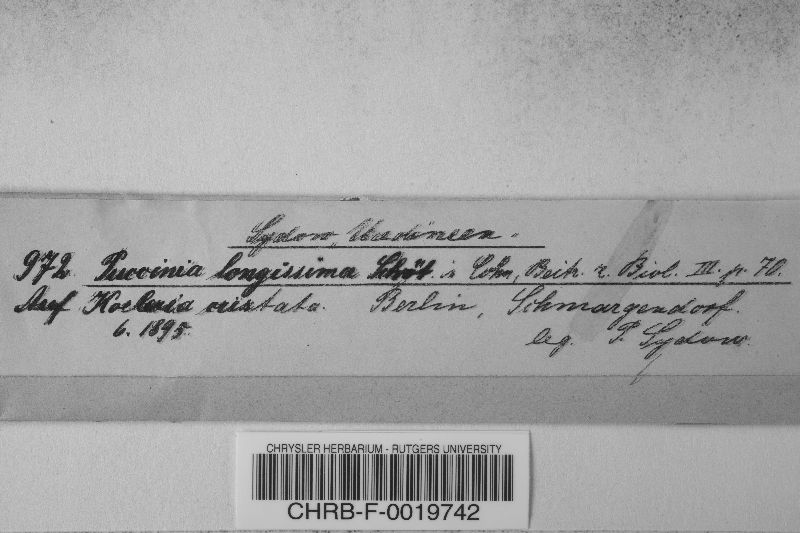 Sydow, Uredineen.
972. Puccinia longissima Schröt. in Cohn, Beitr. z. Biol. III. p. 70.
Auf Koeleria cristata. Berlin, Schmargendorf.
6. 1895. leg. P. Sydow.
CHRYSLER HERBARIUM - RUTGERS UNIVERSITY
CHRB-F-0019742